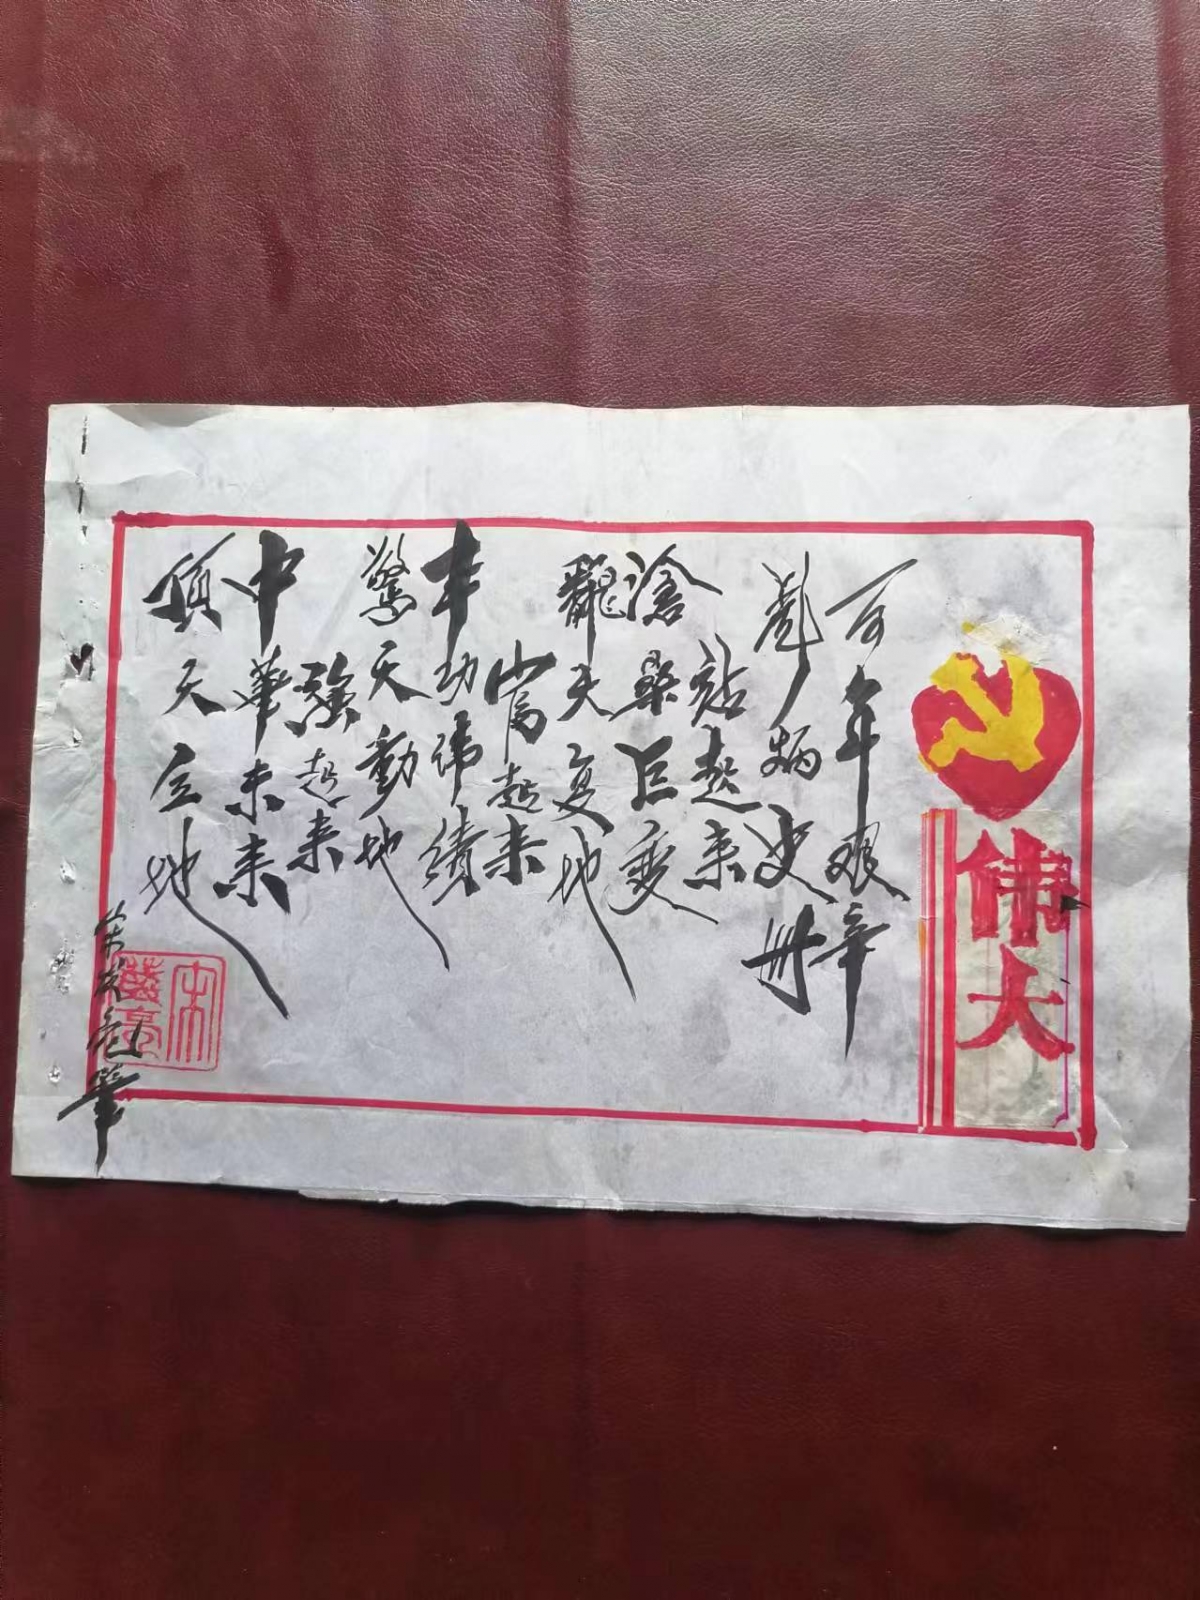 伟大
百年艰辛
彪炳史册
站起来
沧桑巨变
翻天复地
富起来
丰功伟绩
驚天動地
强起来
中華未来
顶天立地